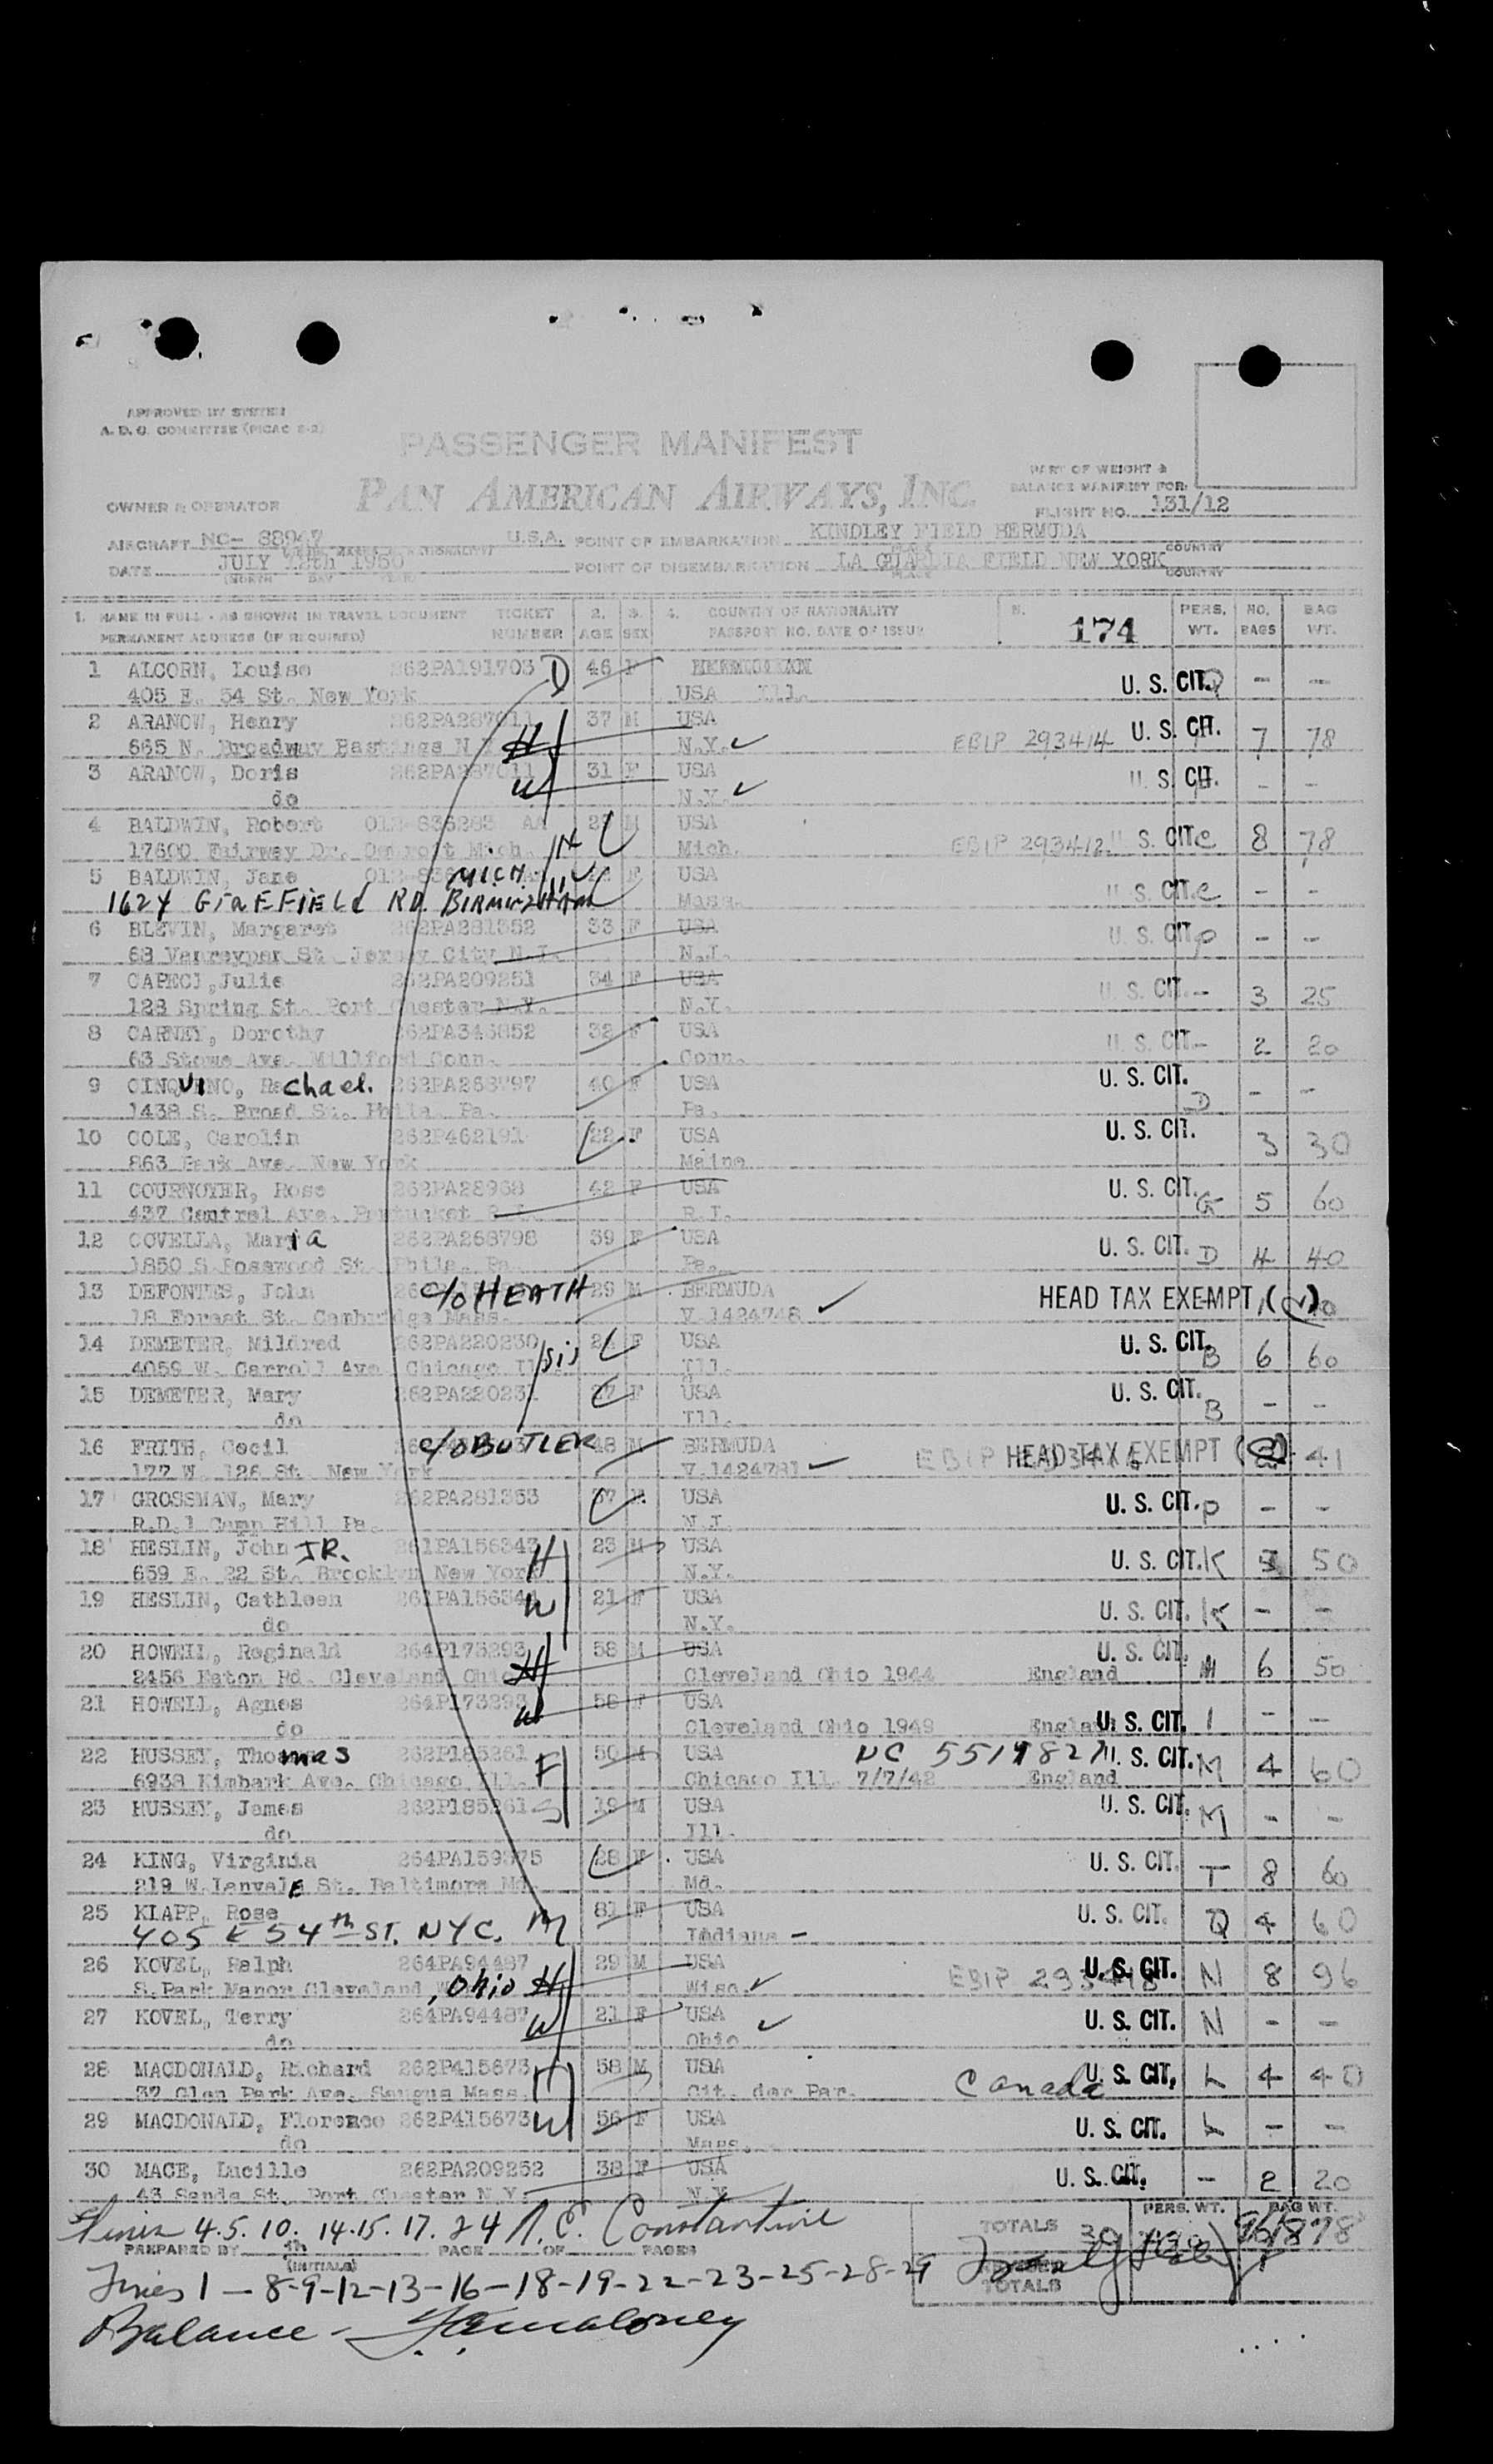 APPROVED BY SYSTEM
A. D. O. COMMITTEE (PICAC 2-2)
PASSENGER MANIFEST
PAN AMERICAN AIRWAYS, INC.
PART OF WEIGHT &
BALANCE MANIFEST FOR
OWNER & OPERATOR
FLIGHT NO. 131/12
AIRCRAFT NC- 88947 U.S.A. POINT OF EMBARKATION KINDLEY FIELD BERMUDA
PLACE COUNTRY
DATE JULY 12th 1950 POINT OF DISEMBARKATION LA GUARDIA FIELD NEW YORK
(MONTH DAY YEAR) PLACE COUNTRY
1. NAME IN FULL - AS SHOWN IN TRAVEL DOCUMENT TICKET 2. 3. 4. COUNTRY OF NATIONALITY 5. PERS. NO. BAG
PERMANENT ADDRESS (IF REQUIRED) NUMBER AGE SEX PASSPORT NO. DATE OF ISSUE 174 WT. BAGS WT.
1 ALCORN, Louise 262PA191703 D 46 F
405 E. 54 St. New York USA Ill. U. S. CIT. Q - -
2 ARANOW, Henry 37 M USA U. S. CIT.
665 N. Broadway Hastings N.Y. H N.Y. EBIP 293414 7 78
3 ARANOW, Doris 262PA287011 31 F USA U. S. CIT. - -
do W N.Y.
4 BALDWIN, Robert M USA
17600 Fairway Dr. Detroit Mich. H Mich. EBIP 293412 U. S. CIT. C 8 78
5 BALDWIN, Jane MICH. W F USA
1624 GRAEFIELD RD. BIRMINGHAM Mass. U. S. CIT. C - -
6 BLEVIN, Margaret 262PA281352 33 F USA U. S. CIT. P - -
N.J.
7 CAPECI, Julie 262PA209251 34 F USA
128 Spring St. Port Chester N.Y. N.Y. U. S. CIT. - 3 25
8 CARNEY, Dorothy 262PA343852 32 F USA
63 Stowe Ave. Millford Conn. Conn. U. S. CIT. - 2 20
9 CINQUINO, Rachael. 262PA268797 40 F USA U. S. CIT.
1438 S. Broad St. Phila. Pa. Pa. D - -
10 COLE, Carolin 262P462191 22 F USA U. S. CIT.
863 Park Ave. New York Maine 3 30
11 COURNOYER, Rose 262PA28968 42 F USA U. S. CIT. G 5 60
437 Central Ave. Pawtucket R.I. R.I.
12 COVELLA, Maria 262PA268798 39 F USA U. S. CIT. D 4 40
1850 S Rosewood St. Phila. Pa. Pa.
13 DEFONTES, John c/o HEATH 29 M BERMUDA HEAD TAX EXEMPT
18 Forest St. Cambridge Mass. V 1424748
14 DEMETER, Mildred 262PA220230 F USA U. S. CIT. B 6 60
4059 W. Carroll Ave. Chicago Ill. sis Ill.
15 DEMETER, Mary 262PA220231 27 F USA U. S. CIT. B - -
do Ill.
16 FRITH, Cecil c/o BUTLER 48 M BERMUDA HEAD TAX EXEMPT 41
177 W. 126 St. New York V.1424781 EBIP
17 GROSSMAN, Mary 262PA281353 37 F USA U. S. CIT. P - -
R.D.1 Camp Hill Pa. N.J.
18 HESLIN, John JR. 261PA156343 H 23 M USA U. S. CIT. K 50
659 E. 22 St. Brooklyn New York N.Y.
19 HESLIN, Cathleen W 21 F USA U. S. CIT. K - -
do N.Y.
20 HOWELL, Reginald 264P173293 58 M USA U. S. CIT.
2456 Eaton Rd. Cleveland Ohio H Cleveland Ohio 1944 England M 6 50
21 HOWELL, Agnes 264P173293 58 F USA
do W Cleveland Ohio 1949 England U. S. CIT. - -
22 HUSSEY, Thomas 262P185261 50 M USA U. S. CIT. M 4 60
6938 Kimbark Ave. Chicago Ill. F Chicago Ill. 7/7/42 England
23 HUSSEY, James 262P185261 S 19 M USA U. S. CIT. M - -
do Ill.
24 KING, Virginia 264PA159375 28 F USA U. S. CIT. T 8 60
219 W. Lanvale St. Baltimore Md. Md.
25 KLAPP, Rose 81 F USA U. S. CIT. Q 4 60
405 E 54th ST. NYC. M Indiana
26 KOVEL, Ralph 264PA94487 29 M USA U. S. CIT. N 8 96
S. Park Manor Cleveland, Ohio H Wisc. EBIP
27 KOVEL, Terry 264PA94487 21 F USA U. S. CIT. N - -
do W Ohio
28 MACDONALD, Richard 262P415673 H 58 M USA U. S. CIT. L 4 40
37 Glen Park Ave. Saugus Mass. Cit. der Par. Canada
29 MACDONALD, Florence 262P415673 W 56 F USA U. S. CIT. L - -
do Mass.
30 MACE, Lucille 262PA209252 38 F USA U. S. CIT. - 2 20
43 Sands St. Port Chester N.Y. N.Y.
Lines 4.5. 10. 14.15. 17. 24 A. E. Constantine
PREPARED BY PAGE OF PAGES TOTALS 30 PERS. WT. BAG WT.
(INITIALS)
Lines 1 - 8-9-12-13-16-18-19-22-23-25-28-29
TOTALS
Balance -